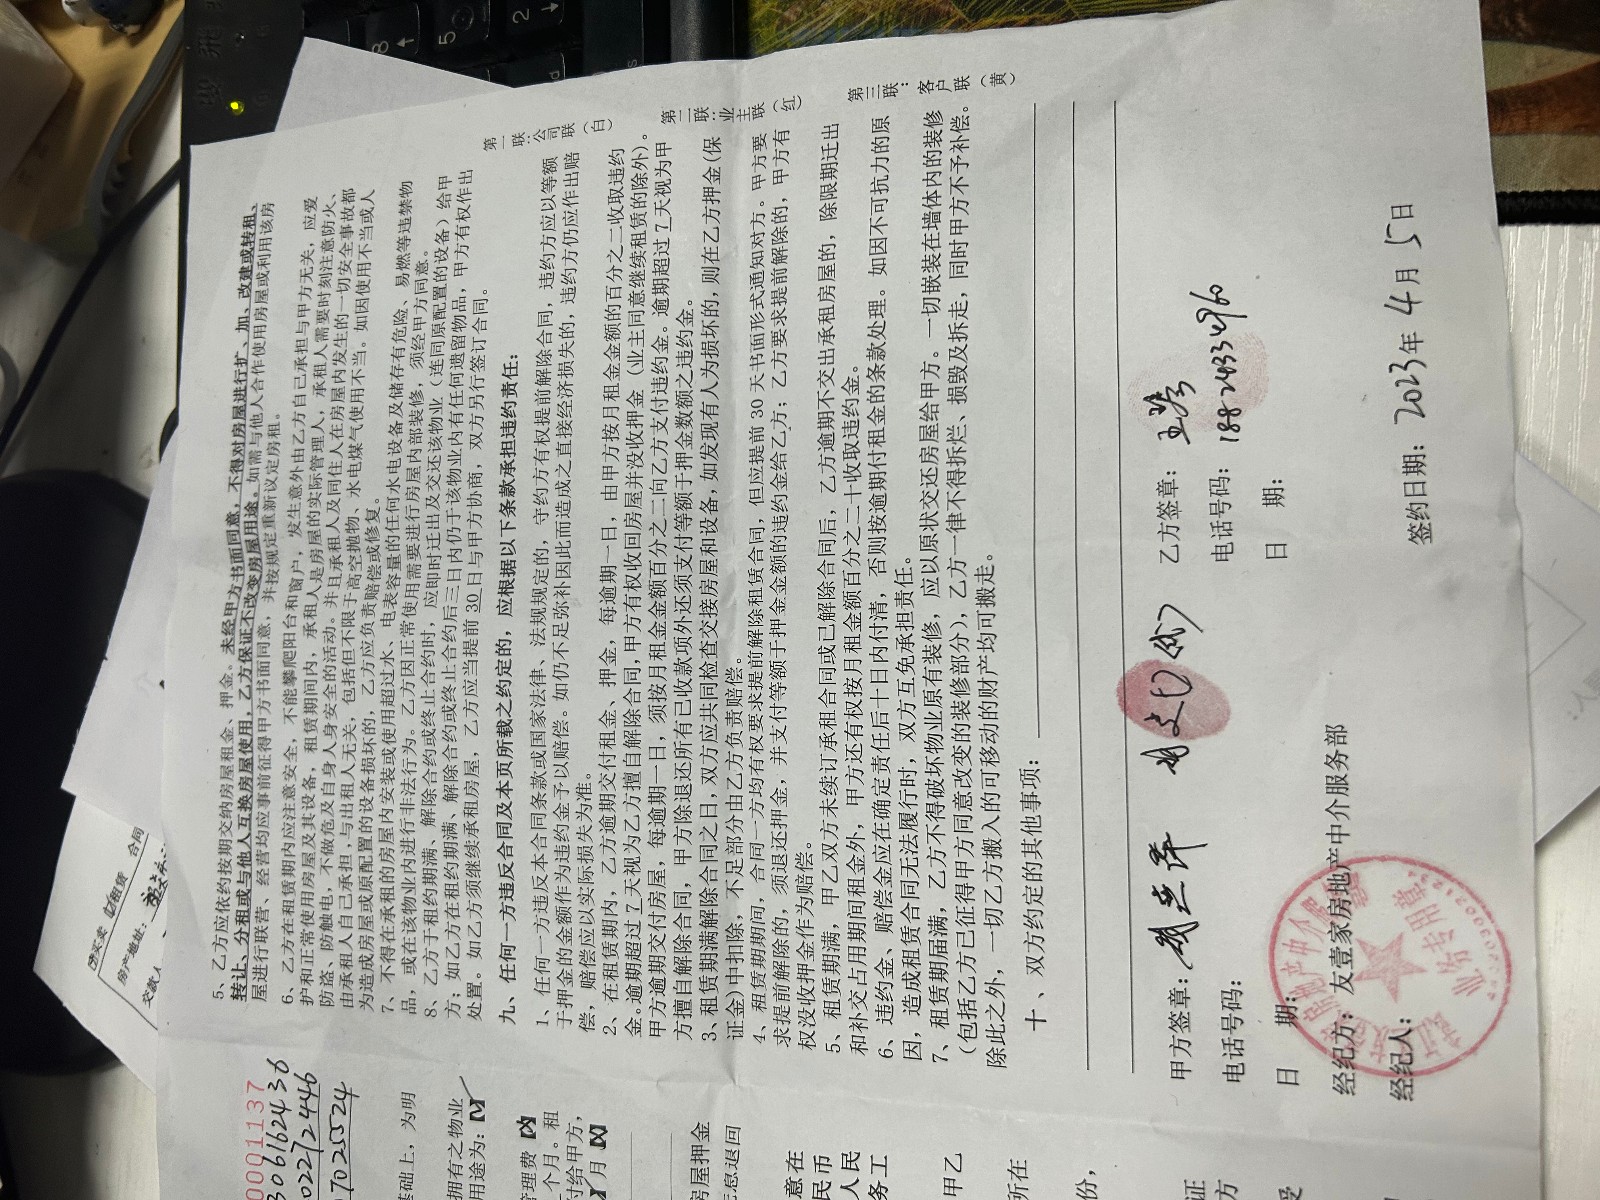 5、乙方应依约按期交纳房屋租金、押金。未经甲方书面同意，不得对房屋进行扩、加、改建或转租、
转让、分租或与他人互换房屋使用，乙方保证不改变房屋用途。如需与他人合作使用房屋或利用该房
屋进行联营、经营均应事前征得甲方书面同意，并按规定重新议定房租。
6、乙方在租赁期内应注意安全，不能攀爬阳台和窗户，发生意外由乙方自己承担与甲方无关，应爱
护和正常使用房屋及其设备，租赁期间内，承租人是房屋的实际管理人，承租人需要时刻注意防火、
防盗、防触电，不做危及自身人身安全的活动。并且承租人及同住人在房屋内发生的一切安全事故都
由承租人自己承担，与出租人无关，包括但不限于高空抛物、水电煤气使用不当。如因使用不当或人
为造成房屋或原配置的设备损坏的，乙方应负责赔偿或修复。
7、不得在承租的房屋内安装或使用超过水、电表容量的任何水电设备及储存有危险、易燃等违禁物
品，或在该物业内进行非法行为。乙方因正常使用需要进行房屋内部装修，须经甲方同意。
8、乙方于租约期满、解除合约或终止合约时，应即时迁出及交还该物业（连同原配置的设备）给甲
方；如乙方在租约期满、解除合约或终止合约后三日内仍于该物业内有任何遗留物品，甲方有权作出
处置。如乙方须继续承租房屋，乙方应当提前 30 日与甲方协商，双方另行签订合同。
九、任何一方违反合同及本页所载之约定的，应根据以下条款承担违约责任：
1、任何一方违反本合同条款或国家法律、法规规定的，守约方有权提前解除合同，违约方应以等额
于押金的金额作为违约金予以赔偿。如仍不足弥补因此而造成之直接经济损失的，违约方仍应作出赔
偿，赔偿应以实际损失为准。
2、在租赁期内，乙方逾期交付租金、押金，每逾期一日，由甲方按月租金金额的百分之二收取违约
金。逾期超过 7 天视为乙方擅自解除合同，甲方有权收回房屋并没收押金（业主同意继续租赁的除外）。
甲方逾期交付房屋，每逾期一日，须按月租金金额百分之二向乙方支付违约金。逾期超过 7 天视为甲
方擅自解除合同，甲方除退还所有已收款项外还须支付等额于押金数额之违约金。
3、租赁期满解除合同之日，双方应共同检查交接房屋和设备，如发现有人为损坏的，则在乙方押金（保
证金）中扣除，不足部分由乙方负责赔偿。
4、租赁期期间，合同一方均有权要求提前解除租赁合同，但应提前 30 天书面形式通知对方。甲方要
求提前解除的，须退还押金，并支付等额于押金金额的违约金给乙方；乙方要求提前解除的，甲方有
权没收押金作为赔偿。
5、租赁期满，甲乙双方未续订承租合同或已解除合同后，乙方逾期不交出承租房屋的，除限期迁出
和补交占用期间租金外，甲方还有权按月租金额百分之二十收取违约金。
6、违约金、赔偿金应在确定责任后十日内付清，否则按逾期付租金的条款处理。如因不可抗力的原
因，造成租赁合同无法履行时，双方互免承担责任。
7、租赁期届满，乙方不得破坏物业原有装修，应以原状交还房屋给甲方。一切嵌装在墙体内的装修
（包括乙方已征得甲方同意改变的装修部分），乙方一律不得拆烂、损毁及拆走，同时甲方不予补偿。
除此之外，一切乙方搬入的可移动的财产均可搬走。
十、双方约定的其他事项：
甲方签章：
乙方签章：
电话号码：
电话号码：18824933496
日 期：
日 期：
经纪方：友壹家房地产中介服务部
经纪人：
签约日期：2023年 4月 5日
第一联：公司联（白）
第二联：业主联（红）
第三联：客户联（黄）
业务专用章
0001137
基础上，为明
拥有之物业
用途为：
管理费
个月。租
付给甲方，
月
房屋押金
无息退回
意在
民币
人民
务工
甲乙
所在
份，
证
方
受
买卖 租赁 合同
房产地址：
交款人